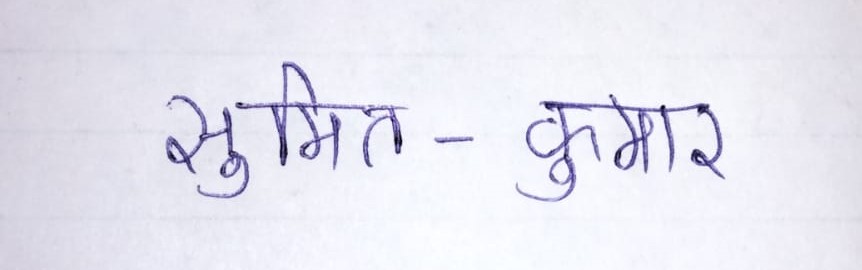 सुमित - कुमार